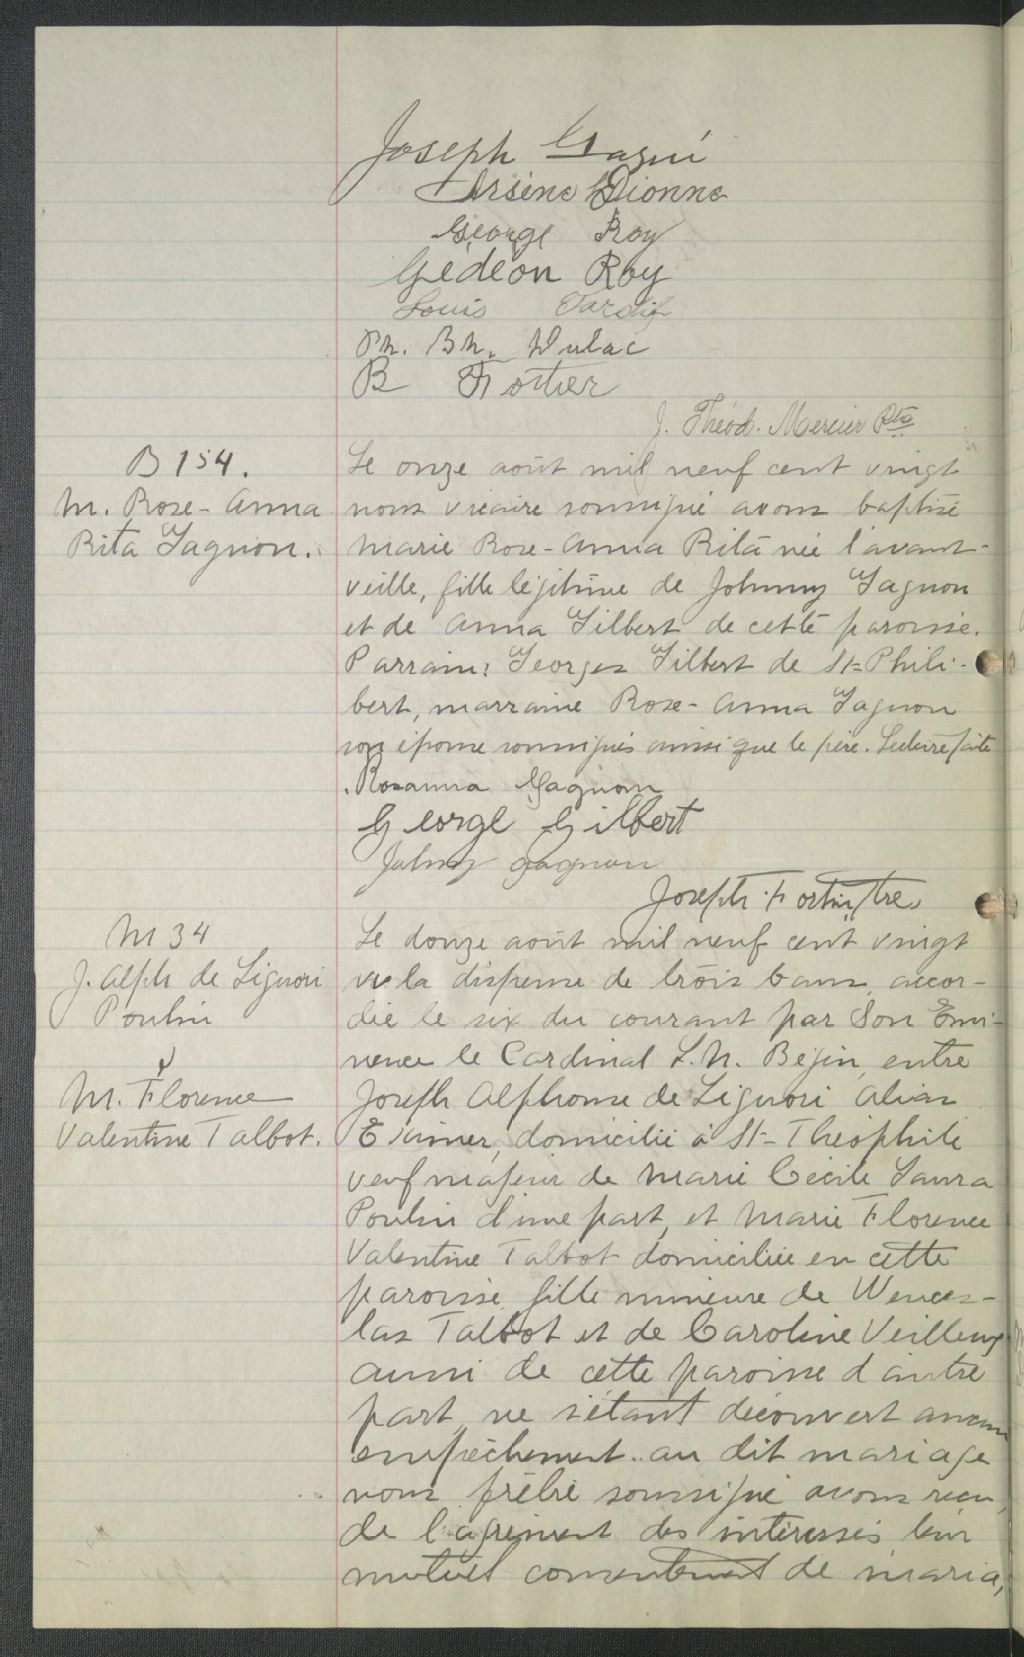 Joseph Gagné
Arsène Dionne
George Roy
Gédéon Roy
Louis Tardif
Ph. Bh. Dulac
B Fortier
J. Théod. Mercier Ptre
B 154.
M. Rose-Anna
Rita Gagnon.
Le onze août mil neuf cent vingt
nous vicaire soussigné avons baptisé
Marie Rose-Anna Rita née l'avant-
veille, fille légitime de Johnny Gagnon
et de Anna Gilbert de cette paroisse.
Parrain: Georges Gilbert de St-Phili-
bert, marraine Rose-Anna Gagnon
son épouse soussignés ainsi que le père. Lecture faite
Rosanna Gagnon
George Gilbert
Johny gagnon
Joseph Fortin, ptre
M 34
J. Alph de Liguori
Poulin
&
M. Florence
Valentine Talbot.
Le douze août mil neuf cent vingt
vu la dispense de trois bans, accor-
dée le six du courant par Son Emi-
nence le Cardinal L. N. Bégin, entre
Joseph Alphonse de Liguori alias
domicilié à St-Théophile
veuf majeur de Marie Cécile Laura
Poulin d'une part, et Marie Florence
Valentine Talbot domiciliée en cette
paroisse, fille mineure de Wences-
las Talbot et de Caroline Veilleux
aussi de cette paroisse d'autre
part, ne s'étant découvert aucun
empêchement au dit mariage
nous prêtre soussigné avons reçu,
de l'agrément des intéressés leur
mutuel consentement de maria,